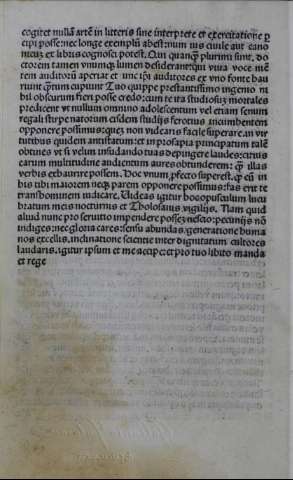 cogitet nullã artẽ in litteris sine interprete et exercitatione p
cipi posse: nec longe exemplũ abest: num ius ciuile aut cano
nicuz ex libris cognosci potest. Qui quanq̃ plurimi sint, do
ctorem tamen vnumq; lumen desiderant: qui viua voce mẽ
tem auditorũ aperiat et
baurt cupiunt Tuo quippe prestantissimo ingenio ni
bil obscurum fieri posse credo: cum te ita studiosuz mortales
predicent vt nullum omnino adolescentum vel etiam senum
regali stirpe natorum eisdem studijs ferotius incumbentem
opponere possimus: quez non videaris facile superare. an vir
tutibus quidem antistatum: et in prosapia principatum talẽ
obtines vt si velim insudando tuas depingere laudes: citius
earum multitudine audientum aures obtunderem: q̃ illas
verbis exbaurire possem. Doc vnum pfecto superest. q̃ cũ in
bis tibi maiorem neq; parem opponere possimus: fas erit te
transbominem iudicare. Uideas igitur boc opusculum lucu
bratum meis nocturnis et Tholosanis vigilijs. Nam quid
aliud nunc pro seruitio impendere possez nescio: pecunijs nõ
indiges: nec gloria cares: sensu abundas. generatione buma
nos excellis. inclinatione scientie inter dignitatum cultores
laudaris. igitur ipsum et me accipe: et pro tuo libito manda
et rege